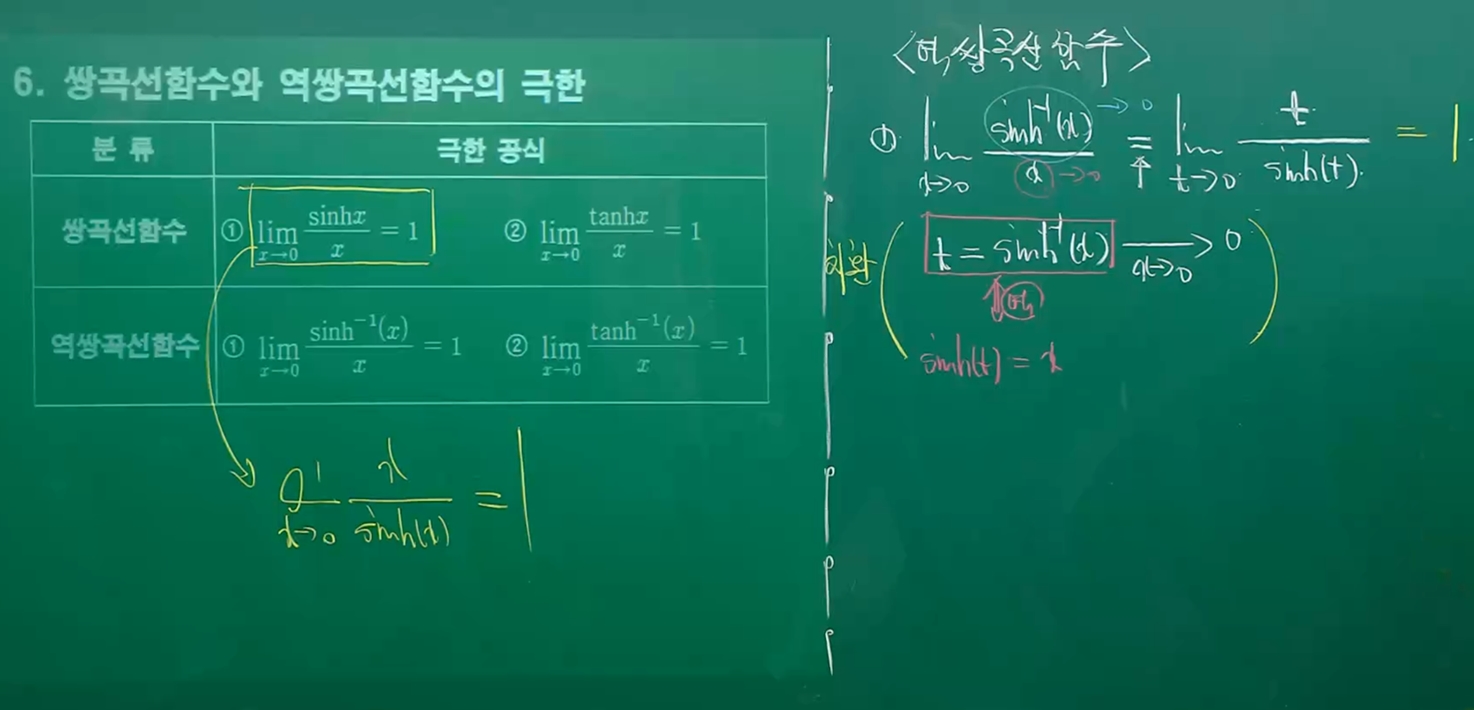 6. 쌍곡선함수와 역쌍곡선함수의 극한
분 류 극한 공식
쌍곡선함수 ① lim x→0 sinhx/x = 1 ② lim x→0 tanhx/x = 1
역쌍곡선함수 ① lim x→0 sinh⁻¹(x)/x = 1 ② lim x→0 tanh⁻¹(x)/x = 1
x→0 x/sinh(x) = 1
<역쌍곡선함수>
① lim x→0 sinh⁻¹(x)/x = lim t→0 t/sinh(t) = 1
→0
→0
치환 ( t = sinh⁻¹(x) x→0 > 0 )
sinh(t) = x